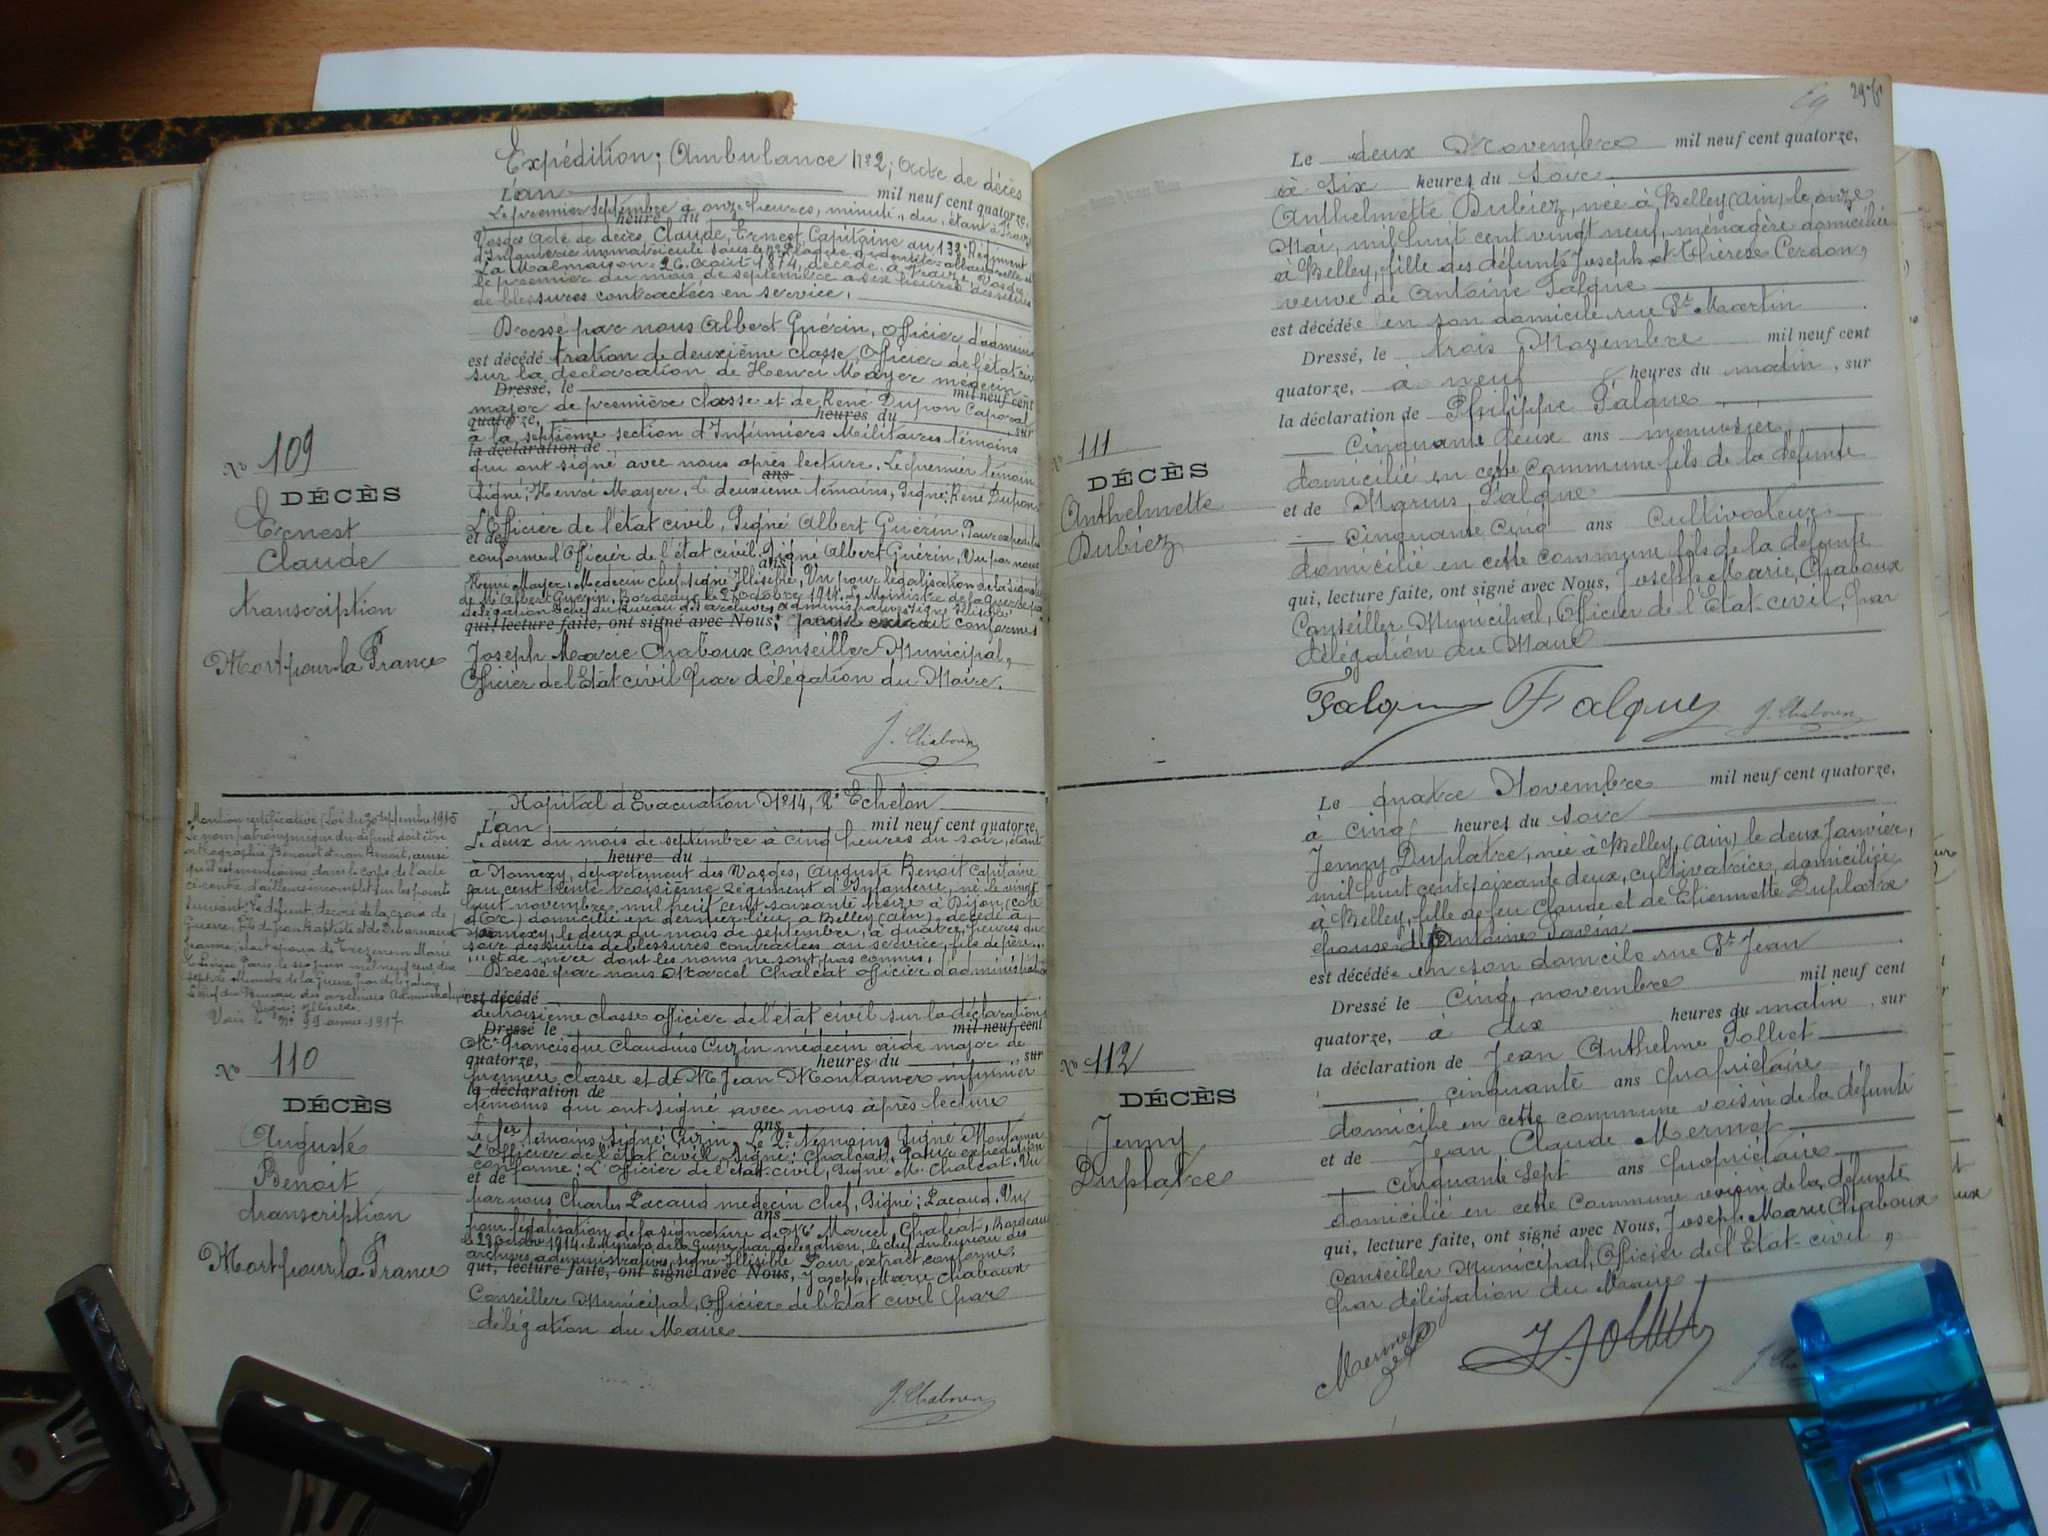 Expédition; Ambulance No 2; Acte de décès
L'an mil neuf cent quatorze,
Le premier septembre à onze heures, minute du, étant à
heure du
Vosges Acte de décès Claude, Ernest Capitaine au 133e Régiment
d'Infanterie immatriculé sous le No Plaque d'identité:
La Malmaison 26 Août 1874, décédé à Vosges,
le premier du mois de septembre à six heures des suites
de blessures contractées en service.
Dressé par nous Albert Guérin, officier d'adminis
est décédé tration de deuxième classe, Officier de l'état civil
sur la déclaration de Henri Mayer médecin
Dressé, le mil neuf cent
major de première classe et de René Dupon Caporal
quatorze, heures du sur
à la septième section d'Infirmiers Militaires témoins
la déclaration de
qui ont signé avec nous après lecture. Le premier témoin
ans
Signé: Henri Mayer, le deuxième témoins, Signé: René Dupon
L'Officier de l'état civil, Signé Albert Guérin, Pour expédition
et de
conforme l'Officier de l'état civil. Signé Albert Guérin, Vu par nous
ans
Henri Mayer, Médecin chef signé Illisible, Vu pour légalisation de la signature
de Mr Albert Guérin, Bordeaux le 27 octobre 1914. Le Ministre de la Guerre par
délégation le chef du bureau des archives administratives signé illisible.
qui, lecture faite, ont signé avec Nous, Pour extrait conforme,
Joseph Marie Chaboux Conseiller Municipal,
Officier de l'Etat civil par délégation du Maire.
J. Chaboux
No 109
DÉCÈS
Ernest
Claude
transcription
Mort pour la France
Hopital d'Evacuation No 14, 2e Echelon
L'an mil neuf cent quatorze,
Le deux du mois de septembre à cinq heures du soir, étant
heure du
à Nomexy, département des Vosges, Auguste Benoit Capitaine
au cent trente troisième régiment d'Infanterie, né le vingt
huit novembre, mil huit cent soixante treize à Dijon (côte
d'Or) domicilié en dernier lieu à Belley (Ain), décédé à
Nomexy, le deux du mois de septembre, à quatre heures du
soir des suites de blessures contractées au service, fils de père...
... et de mère dont les noms ne sont pas connus.
Dressé par nous Marcel Chalcat officier d'administration
est décédé
de troisième classe officier de l'état civil sur la déclaration
Dressé le mil neuf cent
Mr Francisque Claudius Cuzin médecin aide major de
quatorze, heures du sur
première classe et de M Jean Montamer infirmier
la déclaration de
témoins qui ont signé avec nous après lecture
ans
Le 1er témoins signé: Cuzin, Le 2e témoins, Signé Montamer
L'Officier de l'état civil, Signé: Chalcat, Pour expédition
conforme: L'Officier de l'état-civil, signé M. Chalcat, Vu
et de
par nous Charles Lacaud médecin chef, Signé: Lacaud, Vu
ans
pour légalisation de la signature de Mr Marcel Chalcat, Bordeaux
le 27 octobre 1914 le Ministre de la Guerre par délégation, le chef du bureau des
archives administratives, signé Illisible Pour extrait conforme,
qui, lecture faite, ont signé avec Nous, Joseph Marie Chaboux
Conseiller Municipal, Officier de l'Etat civil par
délégation du Maire
J. Chaboux
Mention rectificative (Loi du 30 septembre 1915
Le nom patronymique du défunt doit être
orthographié Benoist et non Benoit, ainsi
qu'il est mentionné dans le corps de l'acte
ci-contre d'ailleurs incomplet sur les points
suivants: Le défunt, décoré de la croix de
Guerre, fils de Jean Baptiste et de
Jeanne, était époux de Marie
Paris, le six juin mil neuf cent dix
sept. Le Ministre de la Guerre par délégation
Le chef du Bureau des archives Administratives
Signé: Illisible
Voir le No 99 année 1917
No 110
DÉCÈS
Auguste
Benoit
transcription
Mort pour la France
Le deux Novembre mil neuf cent quatorze,
à six heures du soir
Anthelmette Dubiez, née à Belley (Ain) le onze
Mai, mil huit cent vingt neuf, ménagère domiciliée
à Belley, fille des défunts Joseph et Thérèse Cerdon,
veuve de Antoine Falque
est décédée en son domicile rue St Martin
Dressé, le trois Novembre mil neuf cent
quatorze, à neuf heures du matin, sur
la déclaration de Philippe Falque
Cinquante deux ans menuisier,
domicilié en cette commune fils de la défunte
et de Marius Falque
Cinquante cinq ans Cultivateur
domicilié en cette commune fils de la défunte
qui, lecture faite, ont signé avec Nous, Joseph Marie Chaboux
Conseiller Municipal, Officier de l'Etat-civil, par
délégation du Maire
Falque Falque J. Chaboux
No 111
DÉCÈS
Anthelmette
Dubiez
Le quatre Novembre mil neuf cent quatorze,
à cinq heures du soir
Jenny Duplatre, née à Belley, (Ain) le deux Janvier,
mil huit cent soixante deux, cultivatrice, domiciliée
à Belley, fille de feu Claude et de Etiennette Duplatre
épouse de Antoine Savin
est décédée en son domicile rue St Jean
Dressé le Cinq novembre mil neuf cent
quatorze, à dix heures du matin, sur
la déclaration de Jean Anthelme Jolliet
cinquante ans propriétaire
domicilié en cette commune voisin de la défunte
et de Jean Claude Mermet
cinquante sept ans propriétaire
domicilié en cette Commune voisin de la défunte
qui, lecture faite, ont signé avec Nous, Joseph Marie Chaboux
Conseiller Municipal, Officier de l'Etat-civil,
par délégation du Maire
Mermet
No 112
DÉCÈS
Jenny
Duplatre